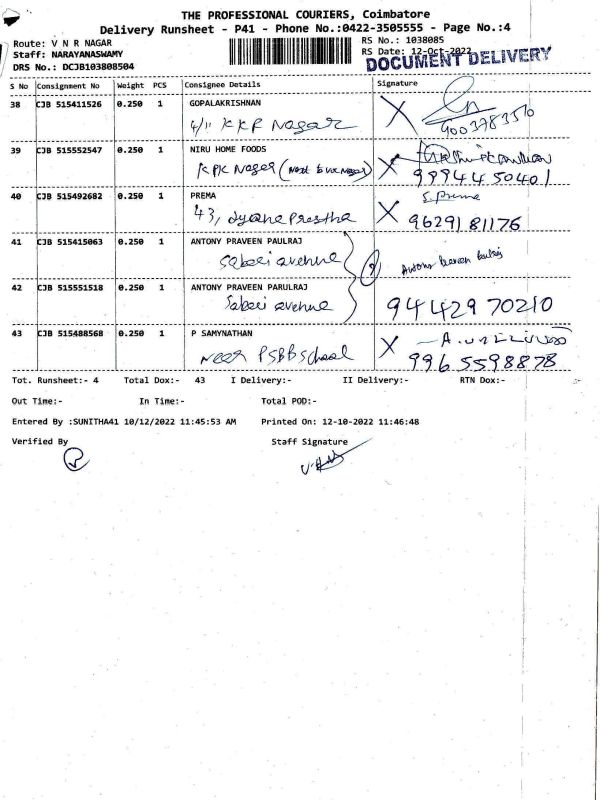 THE PROFESSIONAL COURIERS, Coimbatore
Delivery Runsheet - P41 - Phone No.:0422-3505555 - Page No.:4
Route: V N R NAGAR
RS No.: 1038085
Staff: NARAYANASWAMY
RS Date: 12-Oct-2022
DOCUMENT DELIVERY
DRS No.: DCJB103808504
S No Consignment No Weight PCS Consignee Details Signature
38 CJB 515411526 0.250 1 GOPALAKRISHNAN
4/11 KKP Nagar
39 CJB 515552547 0.250 1 NIRU HOME FOODS
KPK Nager (Next to VNR Nager) X
9894450401
40 CJB 515492682 0.250 1 PREMA S. Prema
43, X 9629181176
41 CJB 515415063 0.250 1 ANTONY PRAVEEN PAULRAJ
Sabari avenue
42 CJB 515551518 0.250 1 ANTONY PRAVEEN PARULRAJ
Sabari avenue 9442970210
43 CJB 515488568 0.250 1 P SAMYNATHAN
Near PSBB School X 9965598878
Tot. Runsheet:- 4 Total Dox:- 43 I Delivery:- II Delivery:- RTN Dox:-
Out Time:- In Time:- Total POD:-
Entered By :SUNITHA41 10/12/2022 11:45:53 AM Printed On: 12-10-2022 11:46:48
Verified By Staff Signature